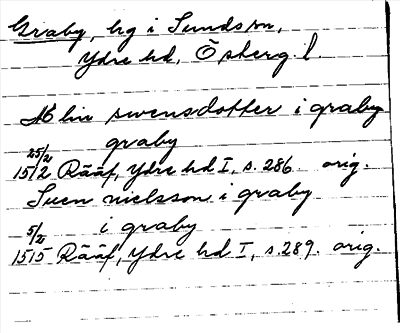 Graby, hg i Sunds sn,
Ydre hd, Östерg. l.
Elin swensdotter i graby
graby
25/2
1512 Rääf, Ydre hd I, s. 286 orig.
Suen nielsson i graby
5/2 i graby
1515 Rääf, Ydre hd I, s. 289. orig.